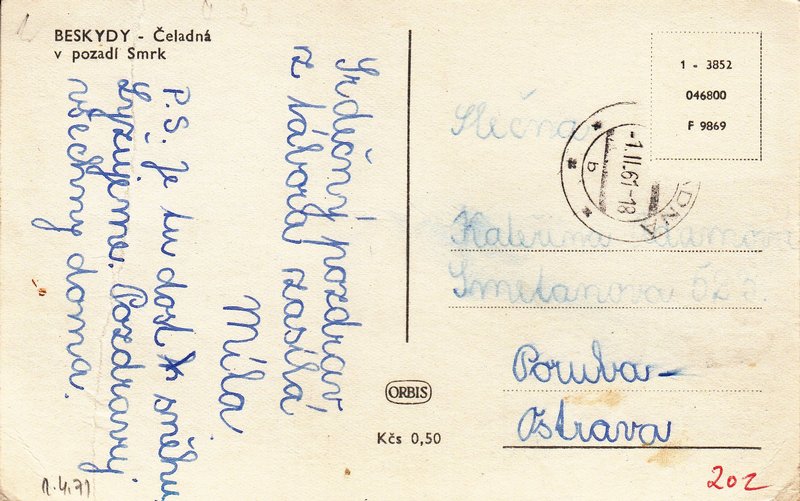 BESKYDY - Čeladná
v pozadí Smrk
Srdečný pozdrav
z tábora zasílá
Míla.
P.S. Je tu dost sněhu
Lyžujeme. Pozdravuj
všechny doma.
ORBIS
Kčs 0,50
1 - 3852
046800
F 9869
-1.II.61-18
b
DNÁ
Slečna
Kateřina
Smetanova
Poruba-
Ostrava
1.4.71
202